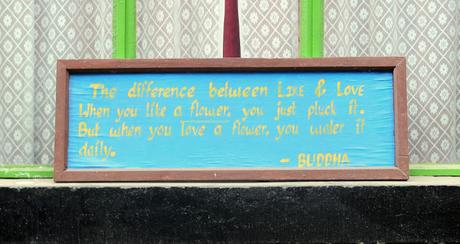 The difference between LIKE & LOVE
When you like a flower, you just pluck it.
But when you love a flower, you water it
daily.
- BUDDHA